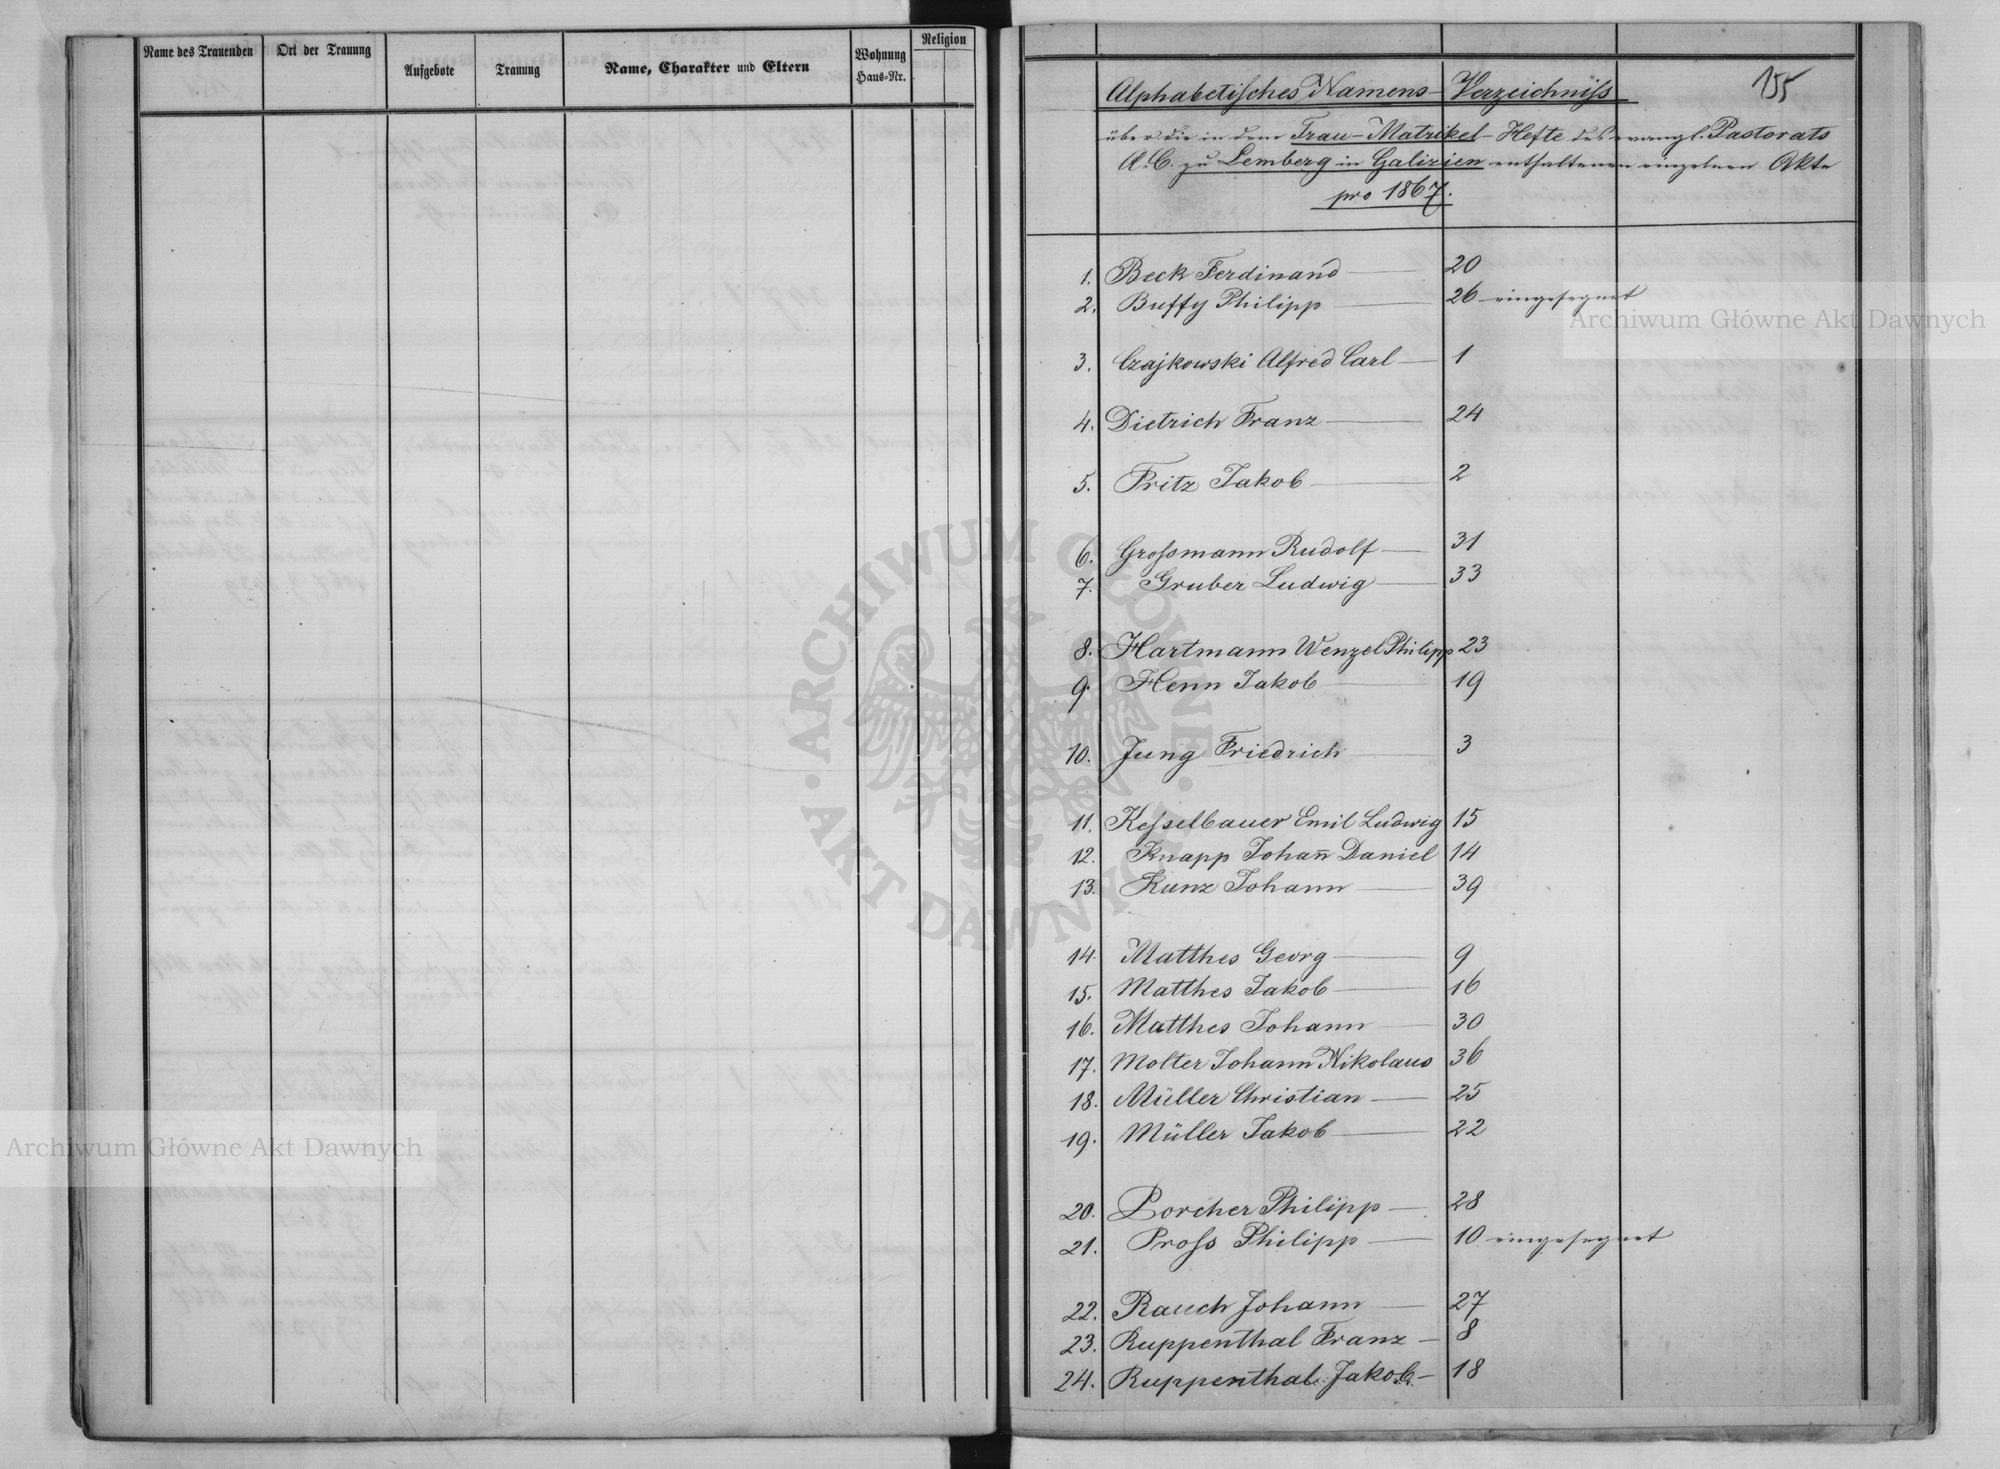 Name des Trauenden
Ort der Trauung
Aufgebote
Trauung
Name, Charakter und Eltern
Wohnung
Haus-Nr.
Religion
155
Alphabetisches Namens-Verzeichniss
über die in dem Trau-Matrikel-Hefte des evangl. Pastorats
A. C. zu Lemberg in Galizien enthaltenen einzelnen Akte
pro 1867.
1. Beck Ferdinand 20
2. Buffy Philipp 26 eingesegnet
3. Czajkowski Alfred Carl 1
4. Dietrich Franz 24
5. Fritz Jakob 2
6. Grossmann Rudolf 31
7. Gruber Ludwig 33
8. Hartmann Wenzel Philipp 23
9. Henn Jakob 19
10. Jung Friedrich 3
11. Kesselbauer Emil Ludwig 15
12. Knapp Johan̄ Daniel 14
13. Kunz Johann 39
14. Matthes Georg 9
15. Matthes Jakob 16
16. Matthes Johann 30
17. Molter Johann Nikolaus 36
18. Müller Christian 25
19. Müller Jakob 22
20. Porcher Philipp 28
21. Pross Philipp 10 eingesegnet
22. Rauch Johann 27
23. Ruppenthal Franz 8
24. Ruppenthal Jakob 18
Archiwum Główne Akt Dawnych
Archiwum Główne Akt Dawnych
ARCHIWUM GŁÓWNE AKT DAWNYCH